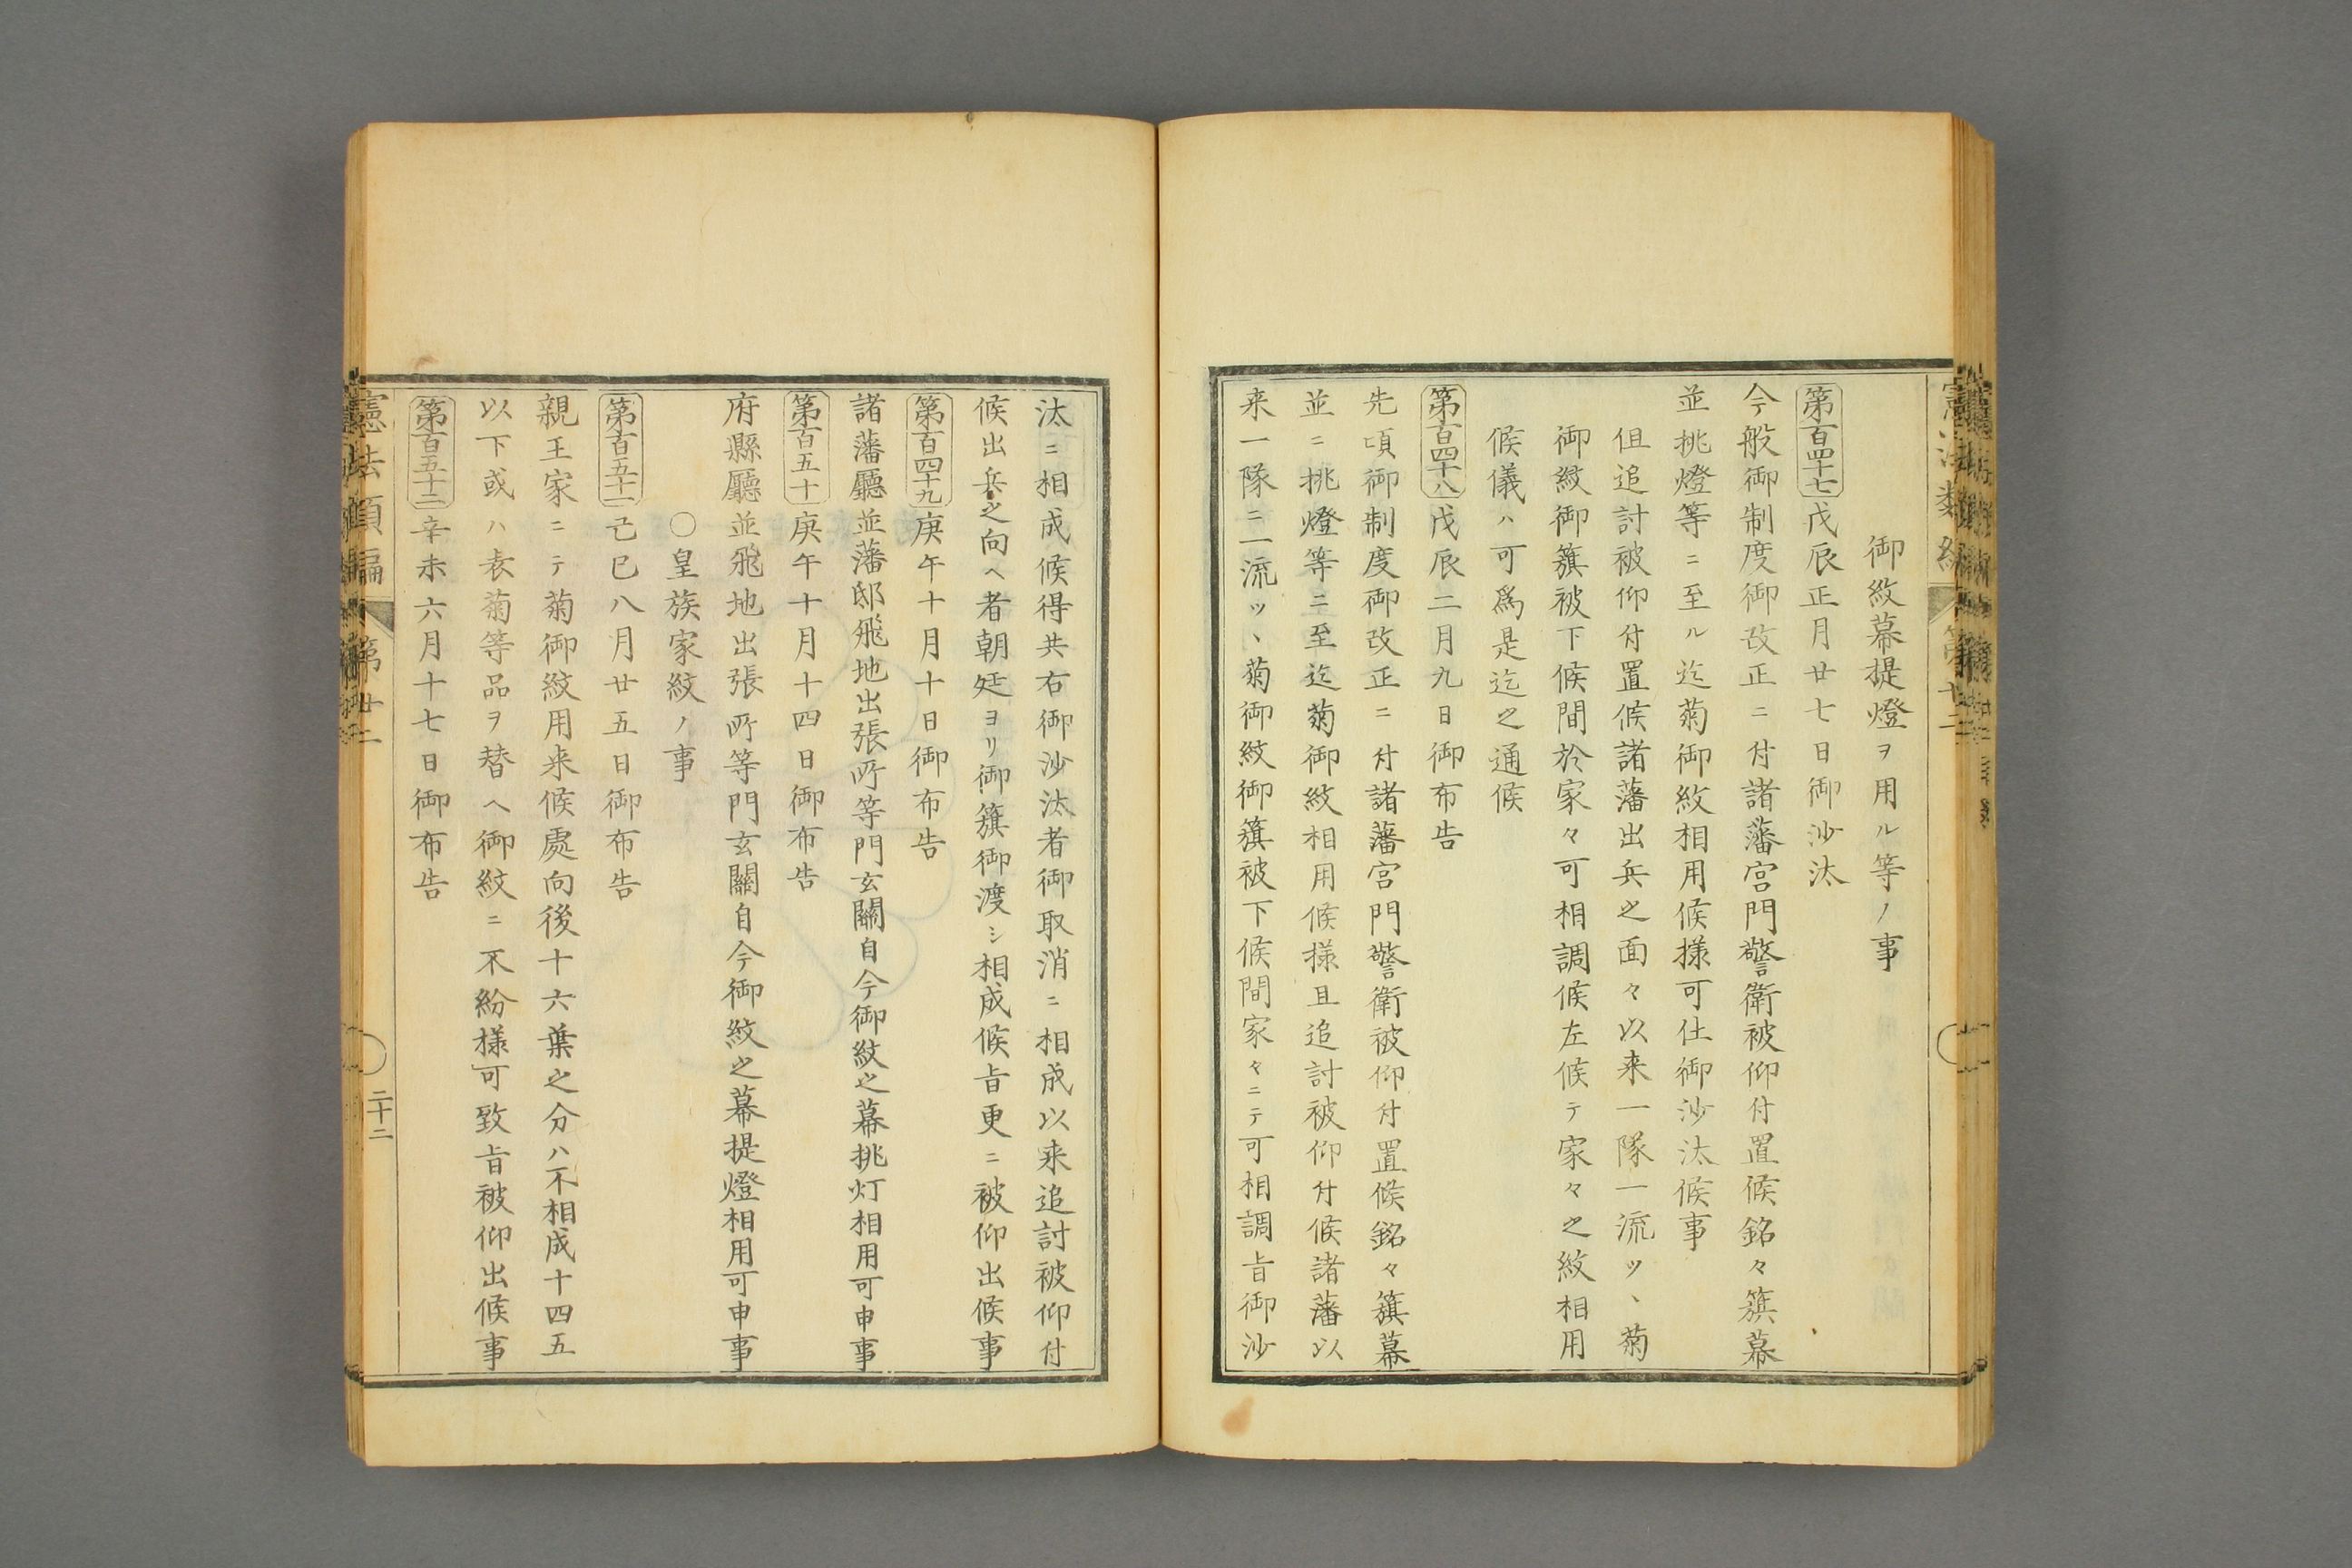 御紋幕提燈ヲ用ル等ノ事
第百四十七 戊辰正月廿七日御沙汰
今般御制度御改正ニ付諸藩宮門警衛被仰付置候銘々籏幕
並挑燈等ニ至ル迄菊御紋相用候様可仕御沙汰候事
但追討被仰付置候諸藩出兵之面々以来一隊一流ツヽ菊
御紋御籏被下候間於家々可相調候左候テ家々之紋相用
候儀ハ可為是迄之通候
第百四十八 戊辰二月九日御布告
先頃御制度御改正ニ付諸藩宮門警衛被仰付置候銘々籏幕
並ニ挑燈等ニ至迄菊御紋相用候様且追討被仰付候諸藩以
来一隊ニ一流ツヽ菊御紋御籏被下候間家々ニテ可相調旨御沙
汰ニ相成候得共右御沙汰者御取消ニ相成以来追討被仰付
候出兵之向ヘ者朝廷ヨリ御籏御渡シ相成候旨更ニ被仰出候事
第百四十九 庚午十月十日御布告
諸藩廳並藩邸飛地出張所等門玄關自今御紋之幕挑灯相用可申事
第百五十 庚午十月十四日御布告
府縣廳並飛地出張所等門玄關自今御紋之幕提燈相用可申事
〇皇族家紋ノ事
第百五十一 己巳八月廿五日御布告
親王家ニテ菊御紋用来候處向後十六葉之分ハ不相成十四五
以下或ハ表菊等品ヲ替ヘ御紋ニ不紛様可致旨被仰出候事
第百五十二 辛未六月十七日御布告
憲法類編 第廿二
二十二